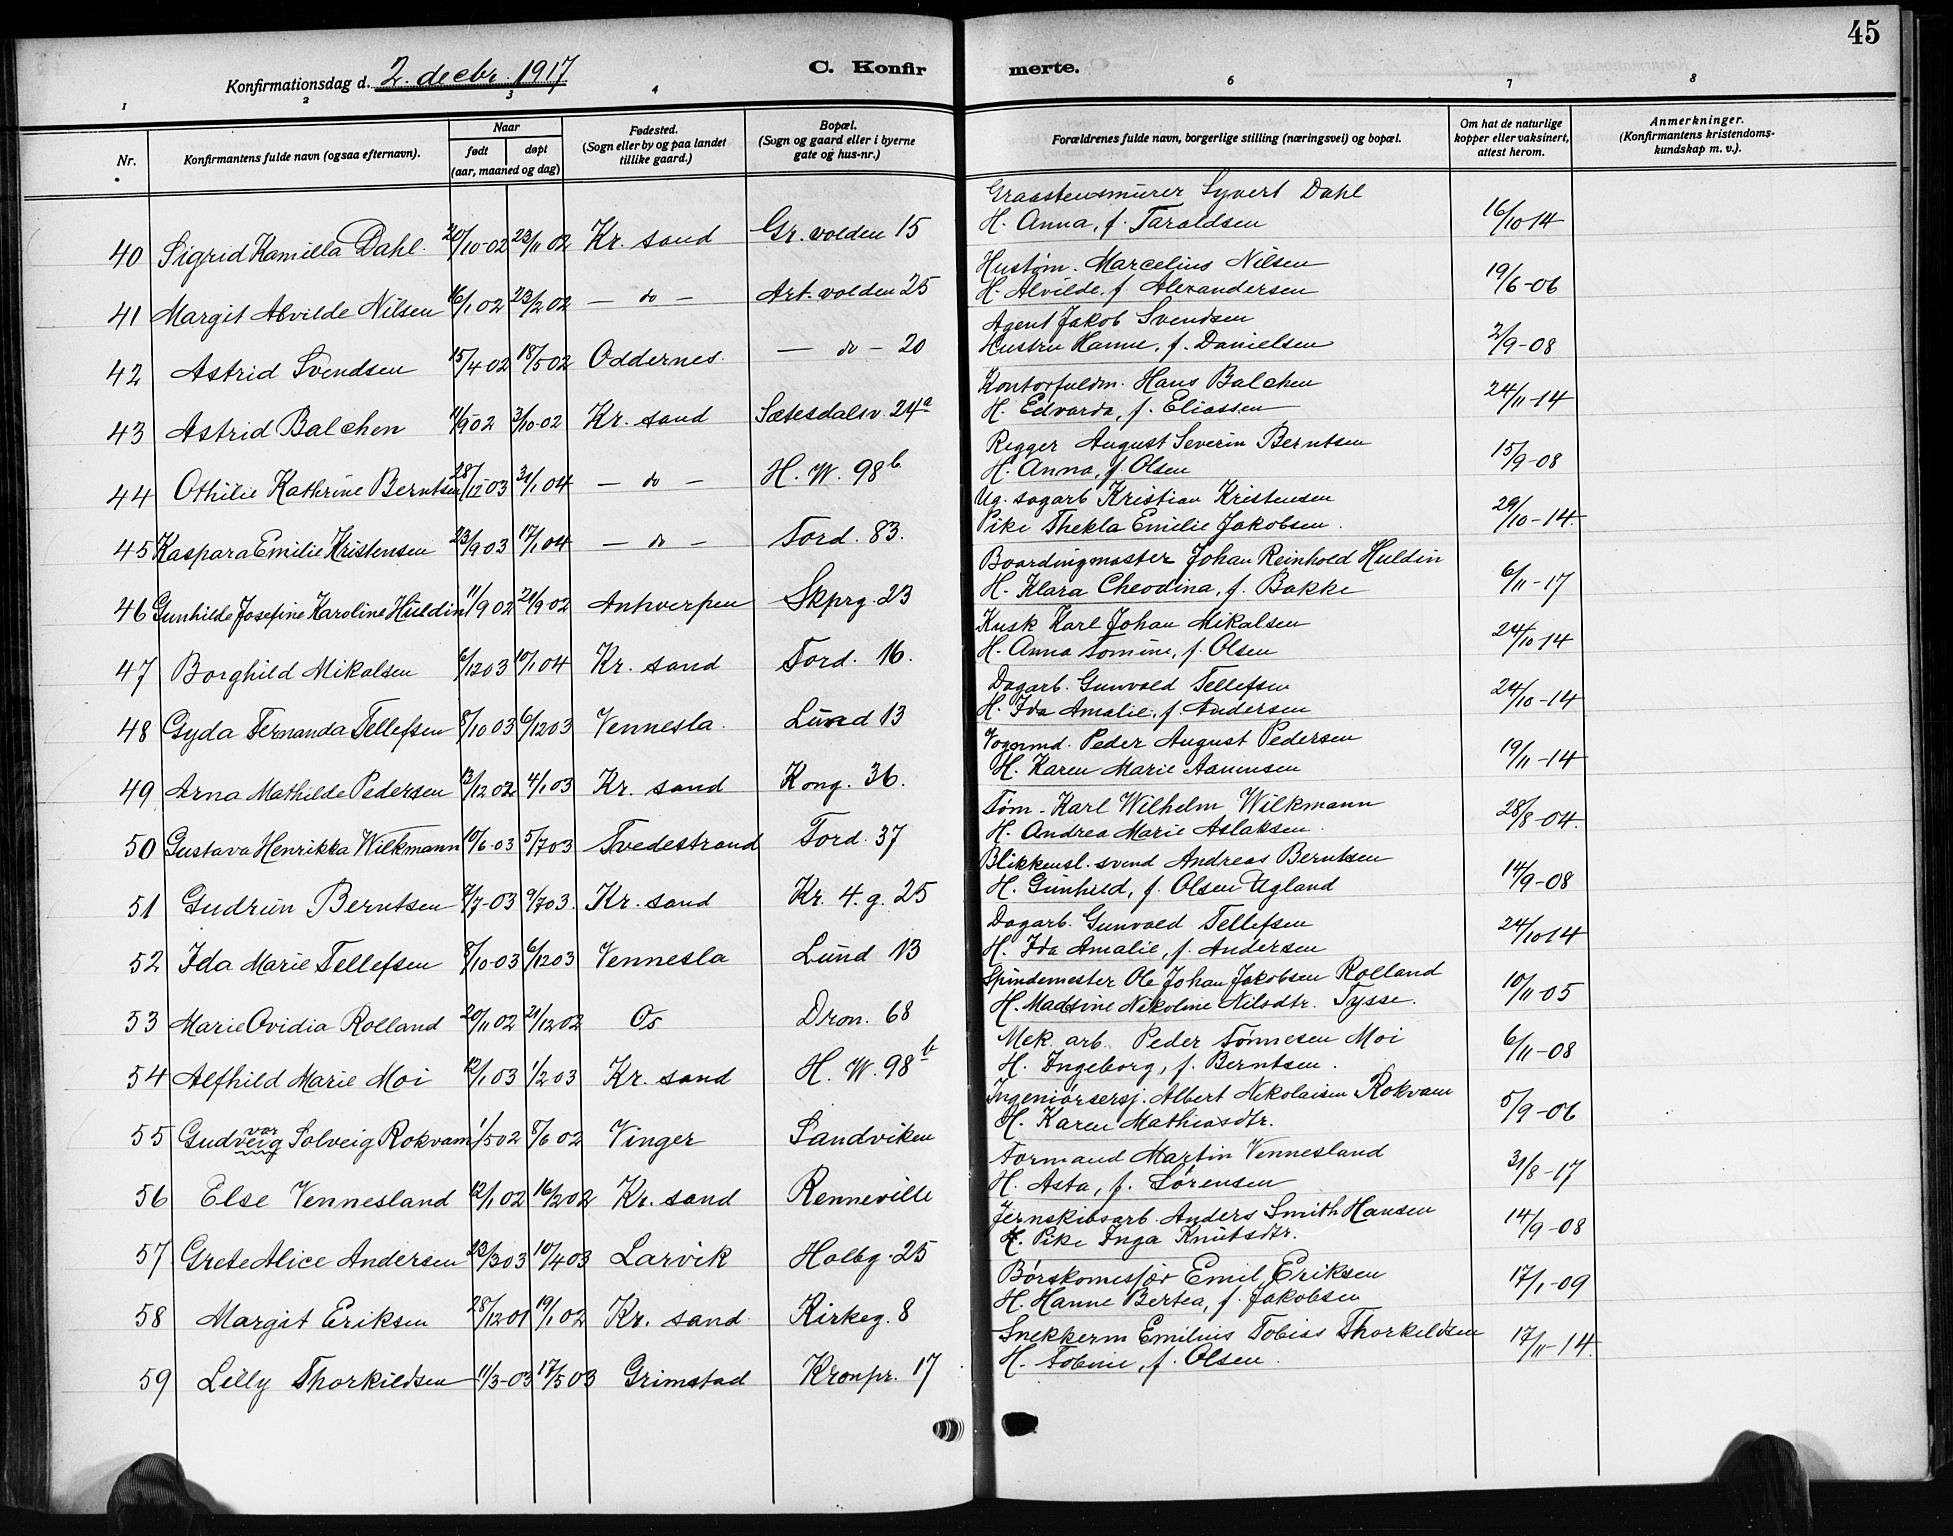 45
Konfirmationsdag d. 2. decbr. 1917
C. Konfirmerte.
1 2 3 4 6 7 8
Nr. Konfirmantens fulde navn (ogsaa efternavn). Naar født døpt (aar, maaned og dag) Fødested. (Sogn eller by og paa landet tillike gaard.) Bopæl. (Sogn og gaard eller i byerne gate og hus-nr.) Forældrenes fulde navn, borgerlige stilling (næringsvei) og bopæl. Om hat de naturlige kopper eller vaksinert, attest herom. Anmerkninger. (Konfirmantens kristendoms-kundskap m. v.).
Graastensmurer Syvert Dahl
40 Sigrid Kamilla Dahl. 20/10-02 23/11 02 Kr. sand Gr. volden 15 H. Anna, f. Taraldsen 16/10 14
Hustøm. Marcelius Nilsen
41 Margit Alvilde Nilsen 16/1 02 23/2 02 — do — Art. volden 25 H. Alvilde, f. Alexandersen 19/6-06
Agent Jakob Svendsen
42 Astrid Svendsen 15/4 02 18/5 02 Oddernes. — do — 20 Hustru Hanne, f. Danielsen 2/9-08
Kontorfuldm. Hans Balchen
43 Astrid Balchen 11/9 02 3/10-02 Kr. sand Sætesdalsv. 24a H. Edvarda, f. Eliassen 24/11-14
Rigger August Severin Berntsen
44 Othilie Kathrine Berntsen 28/12-03 31/1 04 — do — H. W. 98b H. Anna, f. Olsen 15/9-08
Ug. sagarb Kristian Kristensen
45 Kaspara Emilie Kristensen 23/9 03 17/1 04 — do — Tord. 83. Pike Thekla Emilie Jakobsen. 29/10-14.
Boardingmaster Johan Reinhold Huldin
46 Gunhilde Josefine Karoline Huldin 11/9 02 21/9 02 Antwerpen Skprg. 23 H. Klara Cheodina, f. Bakke 6/11-17
Kusk Karl Johan Mikalsen
47 Borghild Mikalsen 6/12 03 10/1 04 Kr. sand Tord. 16. H. Anna Tomine, f. Olsen 24/10-14
Dagarb. Gunvald Tellefsen
48 Gyda Fernanda Tellefsen 8/10 03 6/12 03 Vennesla. Lund 13 H. Ida Amalie, f. Andersen 24/10-14
Vognmd. Peder August Pedersen
49 Arna Mathilde Pedersen 13/12 02 4/1 03 Kr. sand Kong. 36. H. Karen Marie Aanensen 19/11-14
Tøm. Karl Wilhelm Wilkmann
50 Gustava Henrikka Wilkmann 10/6-03 5/7 03 Tvedestrand Tord. 37 H. Andrea Marie Aslaksen. 28/8-04.
Blikkensl. svend Andreas Berntsen
51 Gudrun Berntsen 7/7-03 9/7 03. Kr. sand Kr. 4. g. 25 H. Gunhild, f. Olsen Ugland 14/9-08
Dagarb. Gunvald Tellefsen
52 Ida Marie Tellefsen 8/10-03 6/12 03 Vennesla Lund 13 H. Ida Amalie, f. Andersen 24/10 14
Spindemester Ole Johan Jakobsen Rolland
53 Marie Ovidia Rolland 20/11 02 21/12 02 Os Dron. 68 H. Madsine Nikoline Nilsdtr. Tysse. 10/11-05
Mek. arb. Peder Tønnesen Moi
54 Alfhild Marie Moi 12/1 03 1/2 03 Kr. sand H. W. 98b H. Ingeborg, f. Berntsen. 6/11-08
Ingeniørsersj. Albert Nikolaisen Rokvam
var
55 Gudveig Solveig Rokvam 1/5 02 8/6 02 Vinger Sandviken H. Karen Mathiasdtr. 5/9-06
Formand Martin Vennesland
56 Else Vennesland 12/1 02 16/2 02 Kr. sand Renneville H. Asta, f. Sørensen 31/8-17
Jernskibsarb. Anders Smith Hansen
57 Grete Alice Andersen 23/3 03 10/4 03 Larvik Holbg. 25 Pike Inga Knutsdtr. 14/9-08
Børskomesfær Emil Eriksen
58 Margit Eriksen 28/12 01 19/1 02 Kr. sand Kirkeg. 8 H. Hanne Bertea, f. Jakobsen 17/1-09
Snekkerm Emilius Tobias Thorkildsen
59 Lilly Thorkildsen 11/3-03 17/5 03 Grimstad Kronpr. 17 H. Tobine, f. Olsen. 17/11-14.